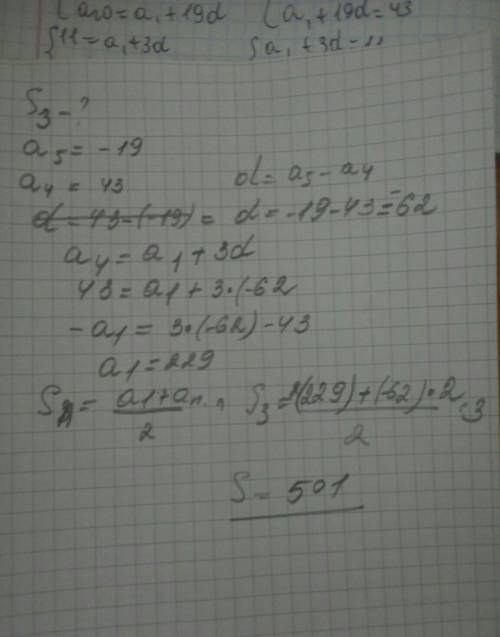 {a20 = a₁ + 19d {a₁ + 19d = 43
{11 = a₁ + 3d {a₁ + 3d = 11
S₃ - ?
a₅ = -19
a₄ = 43 d = a₅ - a₄
d = 43 - (-19) = d = -19 - 43 = -62
a₄ = a₁ + 3d
43 = a₁ + 3·(-62
-a₁ = 3·(-62) - 43
a₁ = 229
S = a₁ + aₙ / 2 · n S₃ = 2(229) + (-62)·2 / 2 · 3
S = 501